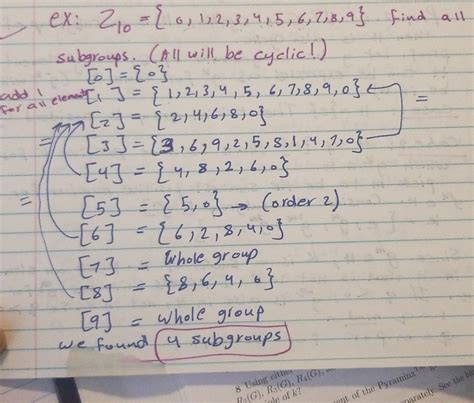 ex: Z10 = { 0,1,2,3,4,5,6,7,8,9} find all
subgroups. (All will be cyclic!)
[0] = {0}
add 1 for all elements [1] = {1,2,3,4,5,6,7,8,9,0} =
[2] = {2,4,6,8,0}
= [3] = {3,6,9,2,5,8,1,4,7,0}
[4] = {4,8,2,6,0}
[5] = {5,0} → (order 2)
= [6] = {6,2,8,4,0}
[7] = Whole group
[8] = {8,6,4, 0}
[9] = whole group
we found 4 subgroups
8 Using
R3(G), R4(G)
ent of the Pyraminx
parately. See the
ole of k?